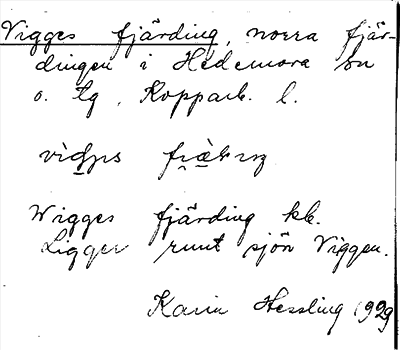 Vigges fjärding, norra fjär-
dingen i Hedemora sn
o. tg, Kopparb. l.
Wigges fjärding kb.
Ligger runt sjön Viggen.
Karin Hessling 1929